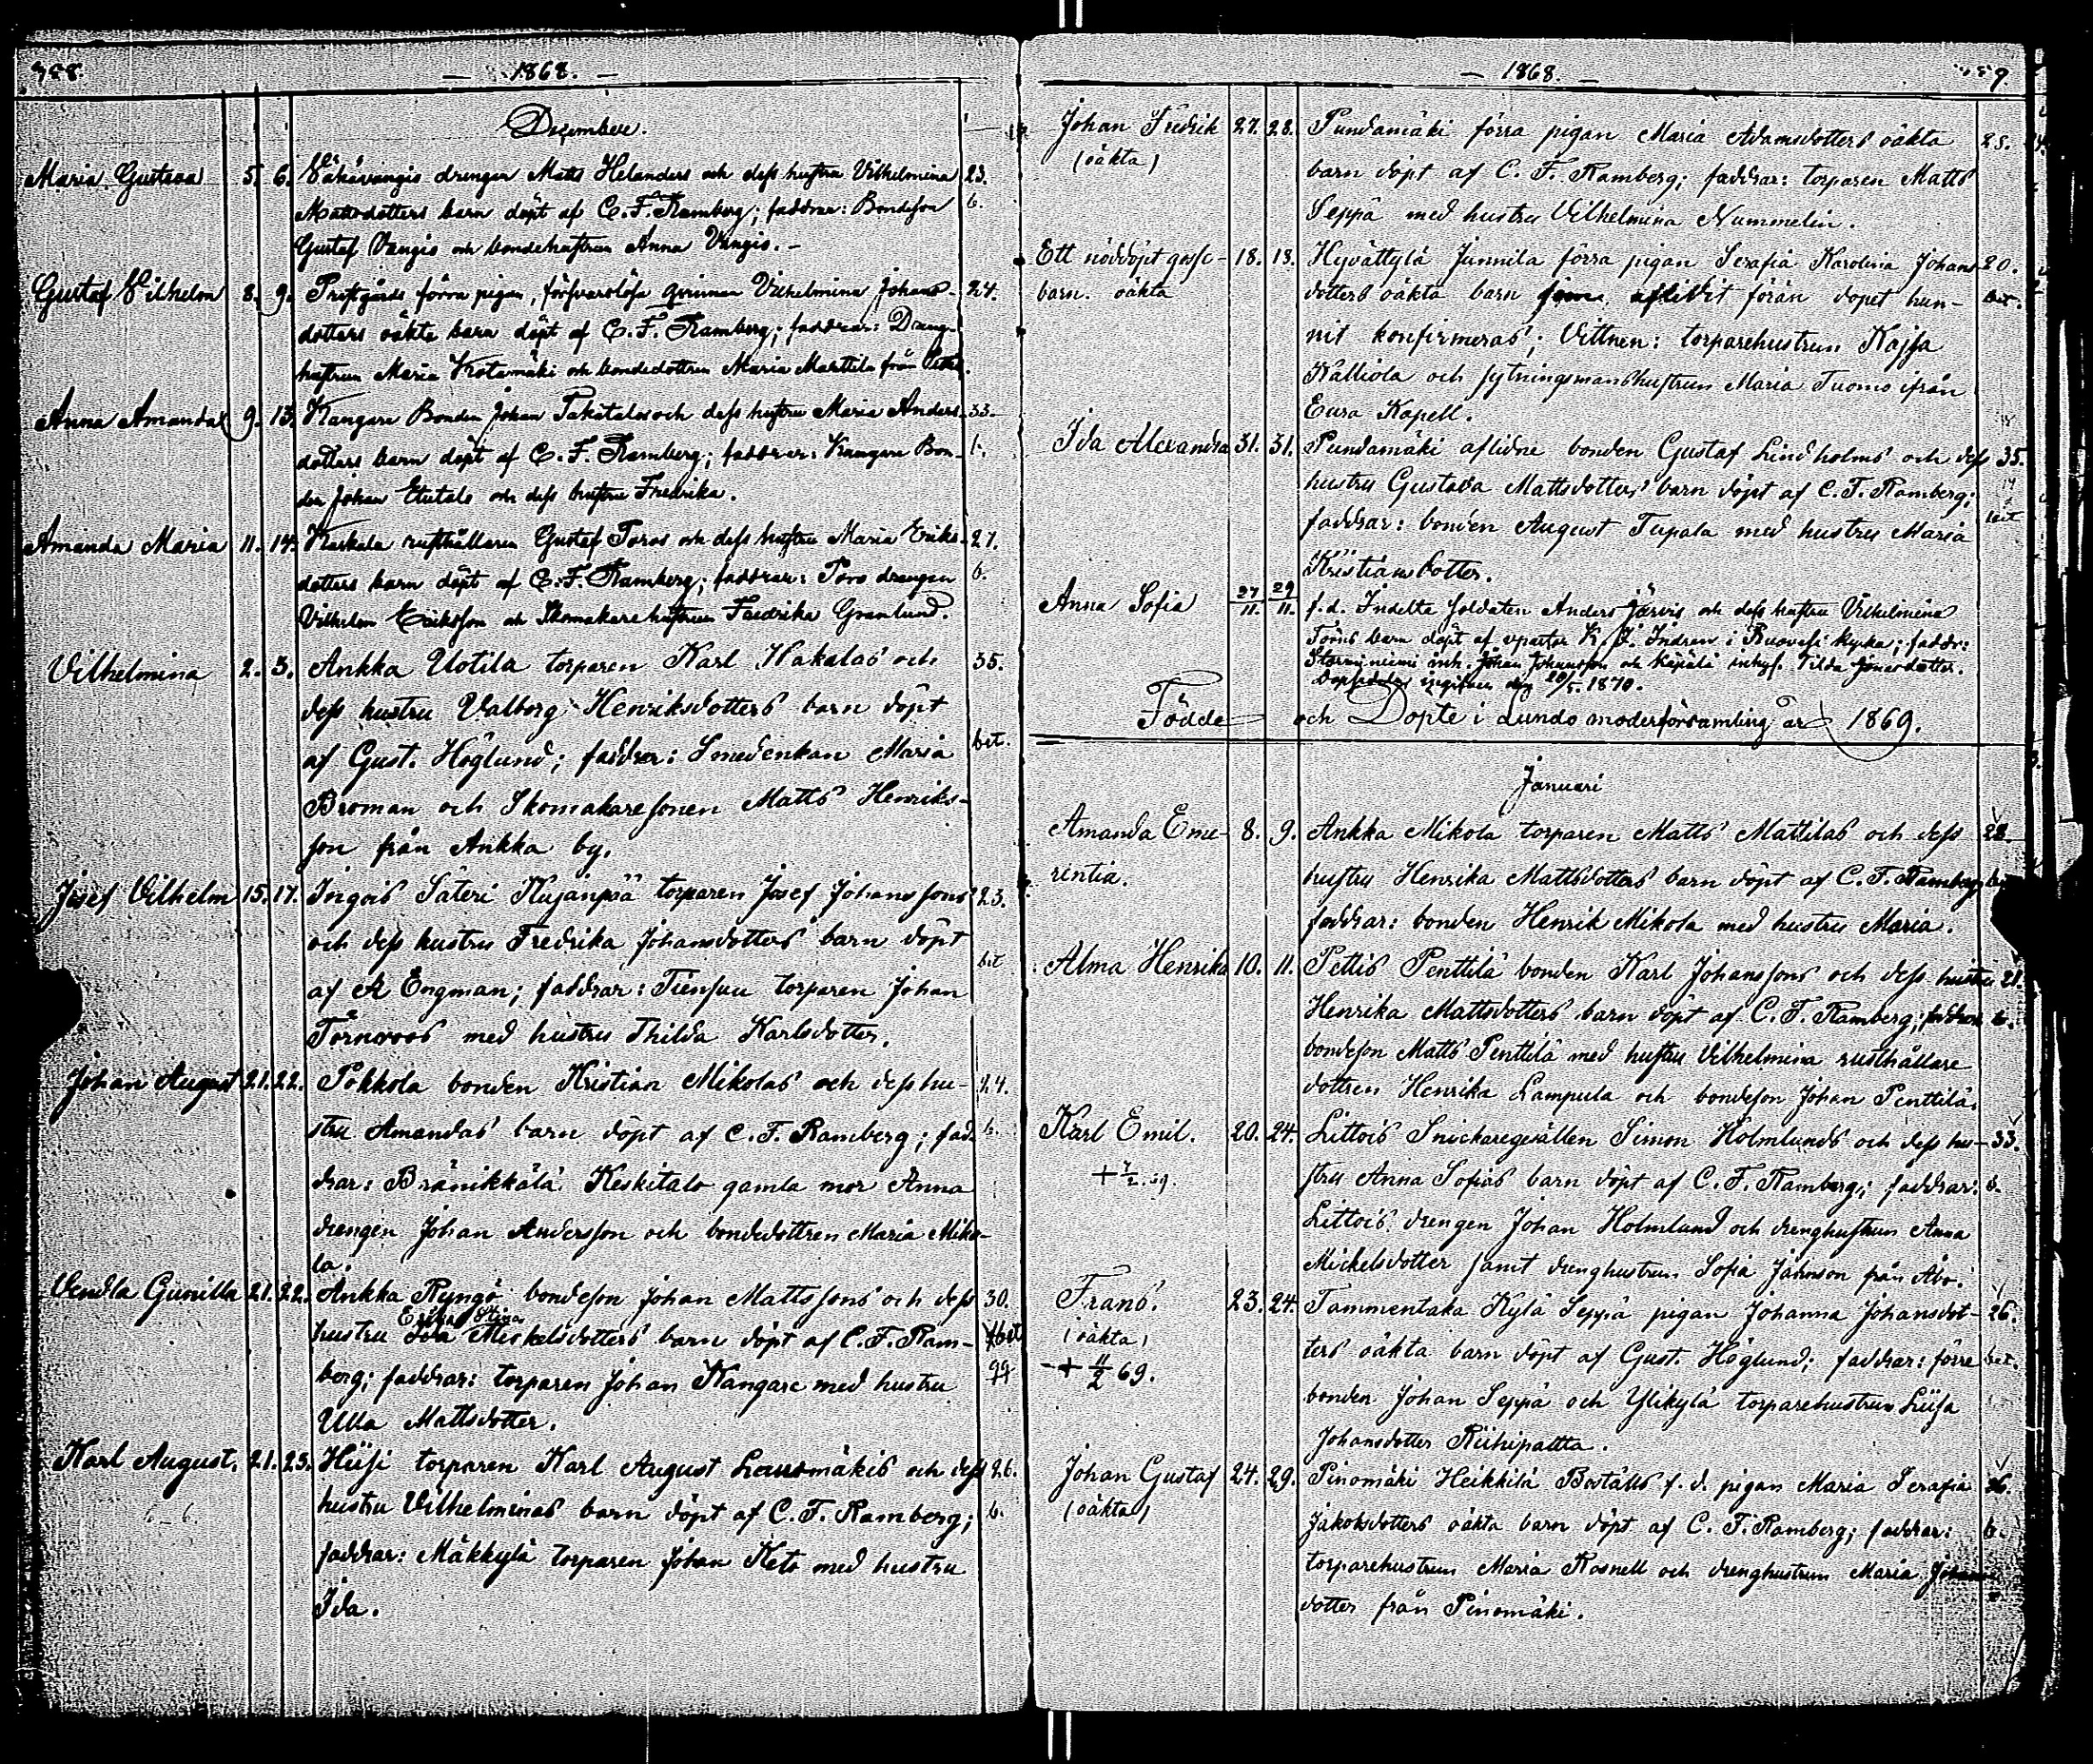 — 1868. —
December.
Maria Gustava 5. 6. Vähävangis drengen Matts Helanders och dess hustru Vilhelmina 23.
Mattsdotters barn döpt af C. F. Ramberg; faddrar: Bondeson b.
Gustaf Vangis och bondehustrun Anna Vangis. —
Gustaf Vilhelm 8. 9. Prestgårds förra pigan, försvarslösa qvinnan Vilhelmina Johans- 24.
dotters oäkta barn döpt af C. F. Ramberg; faddrar: Dräng-
hustrun Maria Krotamäki och bondedottren Maria Marttila från
Anna Amanda 9. 13. Kangare Bonden Johan Pakitalos och dess hustru Maria Anders- 33.
dotters barn döpt af C. F. Ramberg; faddrar: Kangare Bon- b.
den Johan Etutalo och dess hustru Fredrika.
Amanda Maria 11. 14. Kaskala rusthållaren Gustaf Toros och dess hustru Maria Eriks- 27.
dotters barn döpt af C. F. Ramberg; faddrar: Toro drengen b.
Vilhelm Eriksson och Skomakarehustrun Fredrika Granlund.
Vilhelmina 2. 3. Ankka Uotila torparen Karl Hakalas och 35.
dess hustru Valborg Henriksdotters barn döpt
af Gust. Höglund; faddrar: Smedenkan Maria bet.
Broman och Skomakaresonen Matts Henriks-
son från Ankka by.
Josef Vilhelm 15. 17. Ingois Säteri Kujanpää torparen Josef Johanssons 23.
och dess hustru Fredrika Johansdotters barn döpt
af A Engman; faddrar: Tiensuu torparen Johan bet
Törnroos med hustru Thilda Karlsdotter.
Johan August 21. 22. Pokkola bonden Kristian Mikolas och dess hu- 24.
stru Amandas barn döpt af C. F. Ramberg; fad- b.
drar: Bränikkälä Keskitalo gamla mor Anna
drengen Johan Andersson och bondedottren Maria Miko-
la.
Vendla Gunilla 21. 22. Ankka Ryngö bondeson Johan Mattssons och dess 30.
Erika Stina
hustru Ida Mickelsdotters barn döpt af C. F. Ram- bet
berg; faddrar: torparen Johan Kangare med hustru
Ulla Mattsdotter.
Karl August. 21. 23. Hiisi torparen Karl August Lausmäkis och dess 26.
hustru Vilhelminas barn döpt af C. F. Ramberg; b.
faddrar: Mäkkylä torparen Johan Keto med hustru
Ida.
— 1868. —
Johan Fredrik 27. 28. Pundamäki förra pigan Maria Adamsdotters oäkta 25.
(oäkta) barn döpt af C. F. Ramberg; faddrar: torparen Matts
Seppä med hustru Vilhelmina Nummelin.
Ett nöddöpt gosse- 18. 18. Hyvättylä Junnila förra pigan Serafia Karolina Johans- 20.
barn. oäkta dotters oäkta barn aflidit förän dopet hun- bet.
nit konfirmeras; Vittnen: torparehustrun Kajsa
Kalliola och sytningsmanshustrun Maria Tuomo ifrån
Eura Kapell.
Ida Alexandra 31. 31. Pundamäki aflidne bonden Gustaf Lindholms och dess 35.
hustru Gustava Mattsdotters barn döpt af C. F. Ramberg;
faddrar: bonden August Tupala med hustru Maria bet
Kristiansdotter.
Anna Sofia 27/11. 29/11. f. d. Indelta soldaten Anders Järvis och dess hustru Vilhelmina
Törns barn döpt af v pastor K. J. Indren i Ruovesi kyrka; faddr:
Storminiemi inh. Johan Johansson och Käpälä inhys. Tilda Jonasdotter.
Dopsedeln ingifven den 20/5. 1870.
Födde och Döpte i Lundo moderförsamling år 1869.
Januari
Amanda Eme- 8. 9. Ankka Mikola torparen Matts Mattilas och dess 28.
rentia. hustru Henrika Mattsdotters barn döpt af C. F. Ramberg;
faddrar: bonden Henrik Mikola med hustru Maria.
Alma Henrika 10. 11. Pettis Penttilä bonden Karl Johanssons och dess hustru 21.
Henrika Mattsdotters barn döpt af C. F. Ramberg; faddrar b.
bondeson Matts Penttilä med hustru Vilhelmina rusthållare
dottren Henrika Lampula och bondeson Johan Penttilä.
Karl Emil. 20. 24. Littois Snickaregesällen Simon Holmlunds och dess hu- 33.
+ 7/2. 69. stru Anna Sofias barn döpt af C. F. Ramberg; faddrar: b.
Littois drengen Johan Holmlund och drenghustrun Anna
Mickelsdotter samt drenghustrun Sofia Johnson från Åbo.
Frans. 23. 24. Tammentaka Kylä Seppä pigan Johanna Johansdot- 26.
(oäkta) ters oäkta barn döpt af Gust. Höglund; faddrar: förre bet.
+ 11/2 69. bonden Johan Seppä och Ylikylä torparehustrun Liisa
Johansdotter Riihipaltta.
Johan Gustaf 24. 29. Pinomäki Heikkilä Boställs f. d. pigan Maria Serafia 36.
(oäkta) Jakobsdotters oäkta barn döpt af C. F. Ramberg; faddrar: b.
torparehustrun Maria Rosnell och drenghustrun Maria Johans-
dotter från Pinomäki.